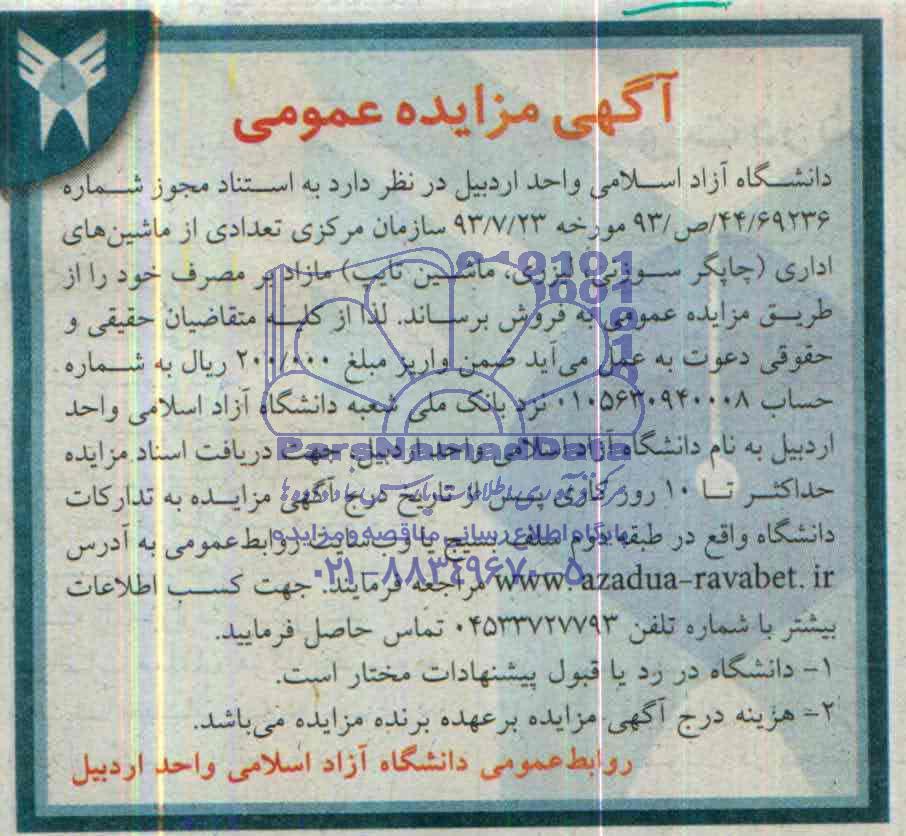 آگهی مزایده عمومی
دانشگاه آزاد اسلامی واحد اردبیل در نظر دارد به استناد مجوز شماره
۴۴/۶۹۲۳۶/ص/۹۳ مورخه ۹۳/۷/۲۳ سازمان مرکزی تعدادی از ماشین‌های
اداری (چاپگر سوزنی، لیزری، ماشین تایپ) مازاد بر مصرف خود را از
طریق مزایده عمومی به فروش برساند. لذا از کلیه متقاضیان حقیقی و
حقوقی دعوت به عمل می‌آید ضمن واریز مبلغ ۲۰۰/۰۰۰ ریال به شماره
حساب ۰۱۰۵۶۳۰۹۴۰۰۰۸ نزد بانک ملی شعبه دانشگاه آزاد اسلامی واحد
اردبیل به نام دانشگاه آزاد اسلامی واحد اردبیل، جهت دریافت اسناد مزایده
حداکثر تا ۱۰ روز کاری پس از تاریخ درج آگهی مزایده به تدارکات
دانشگاه واقع در طبقه دوم سلف بسیج یا وب‌سایت روابط‌عمومی به آدرس
www.azadua-ravabet.ir مراجعه فرمایند. جهت کسب اطلاعات
بیشتر با شماره تلفن ۰۴۵۳۳۷۲۷۷۹۳ تماس حاصل فرمایید.
۱- دانشگاه در رد یا قبول پیشنهادات مختار است.
۲- هزینه درج آگهی مزایده برعهده برنده مزایده می‌باشد.
روابط‌عمومی دانشگاه آزاد اسلامی واحد اردبیل
ParsNamadData
پایگاه اطلاع رسانی مناقصه و مزایده
۰۲۱-۸۸۳۴۹۶۷۰-۵